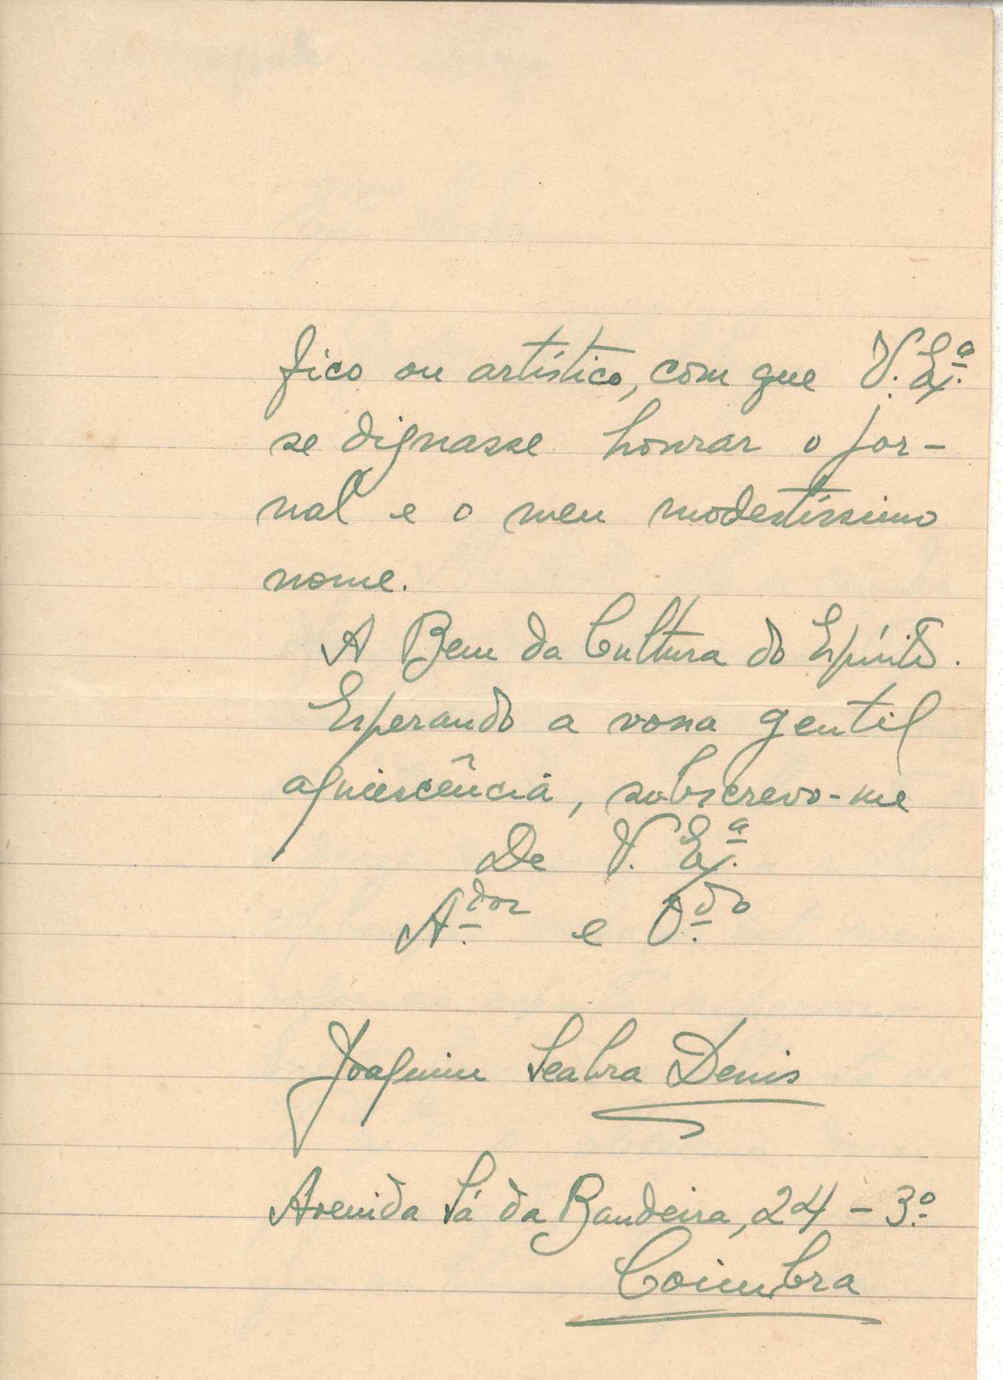 fico ou artístico, com que V. Ex.ª
se dignasse honrar o jor-
nal e o meu modestíssimo
nome.
A Bem da Cultura do Espírito.
Esperando a vossa gentil
aquiescência, subscrevo-me
De V. Ex.ª
A.dor e O.do
Joaquim Seabra Denis
Avenida Sá da Bandeira, 24 - 3.º
Coimbra